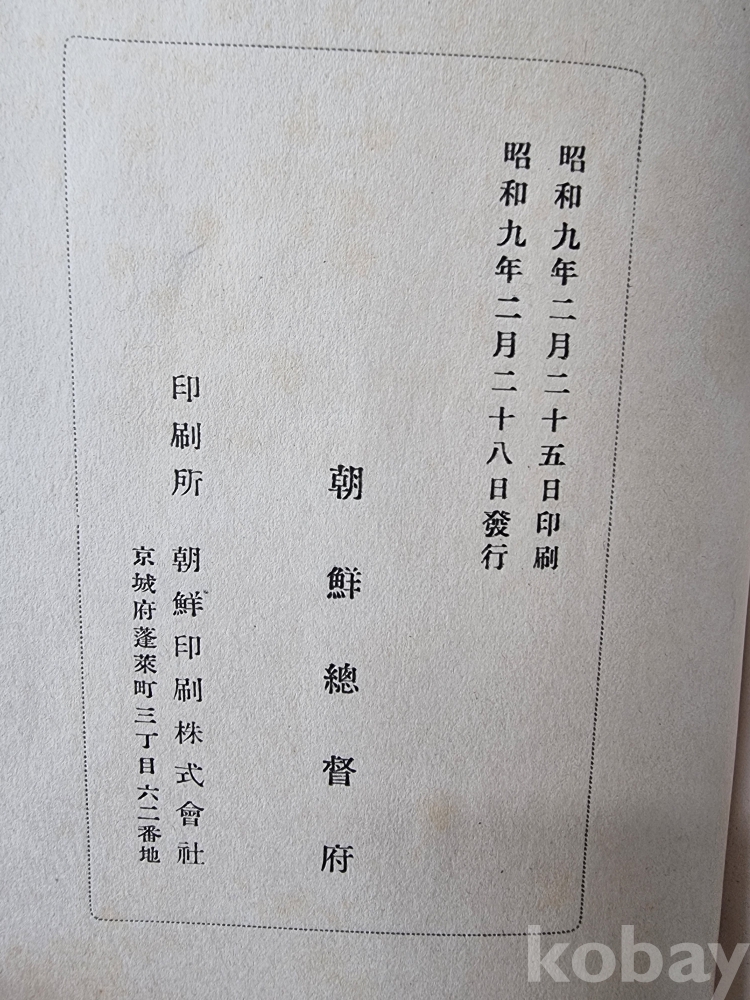 昭和九年二月二十五日印刷
昭和九年二月二十八日發行
朝鮮總督府
印刷所 朝鮮印刷株式會社
京城府蓬萊町三丁目六二番地
kobay